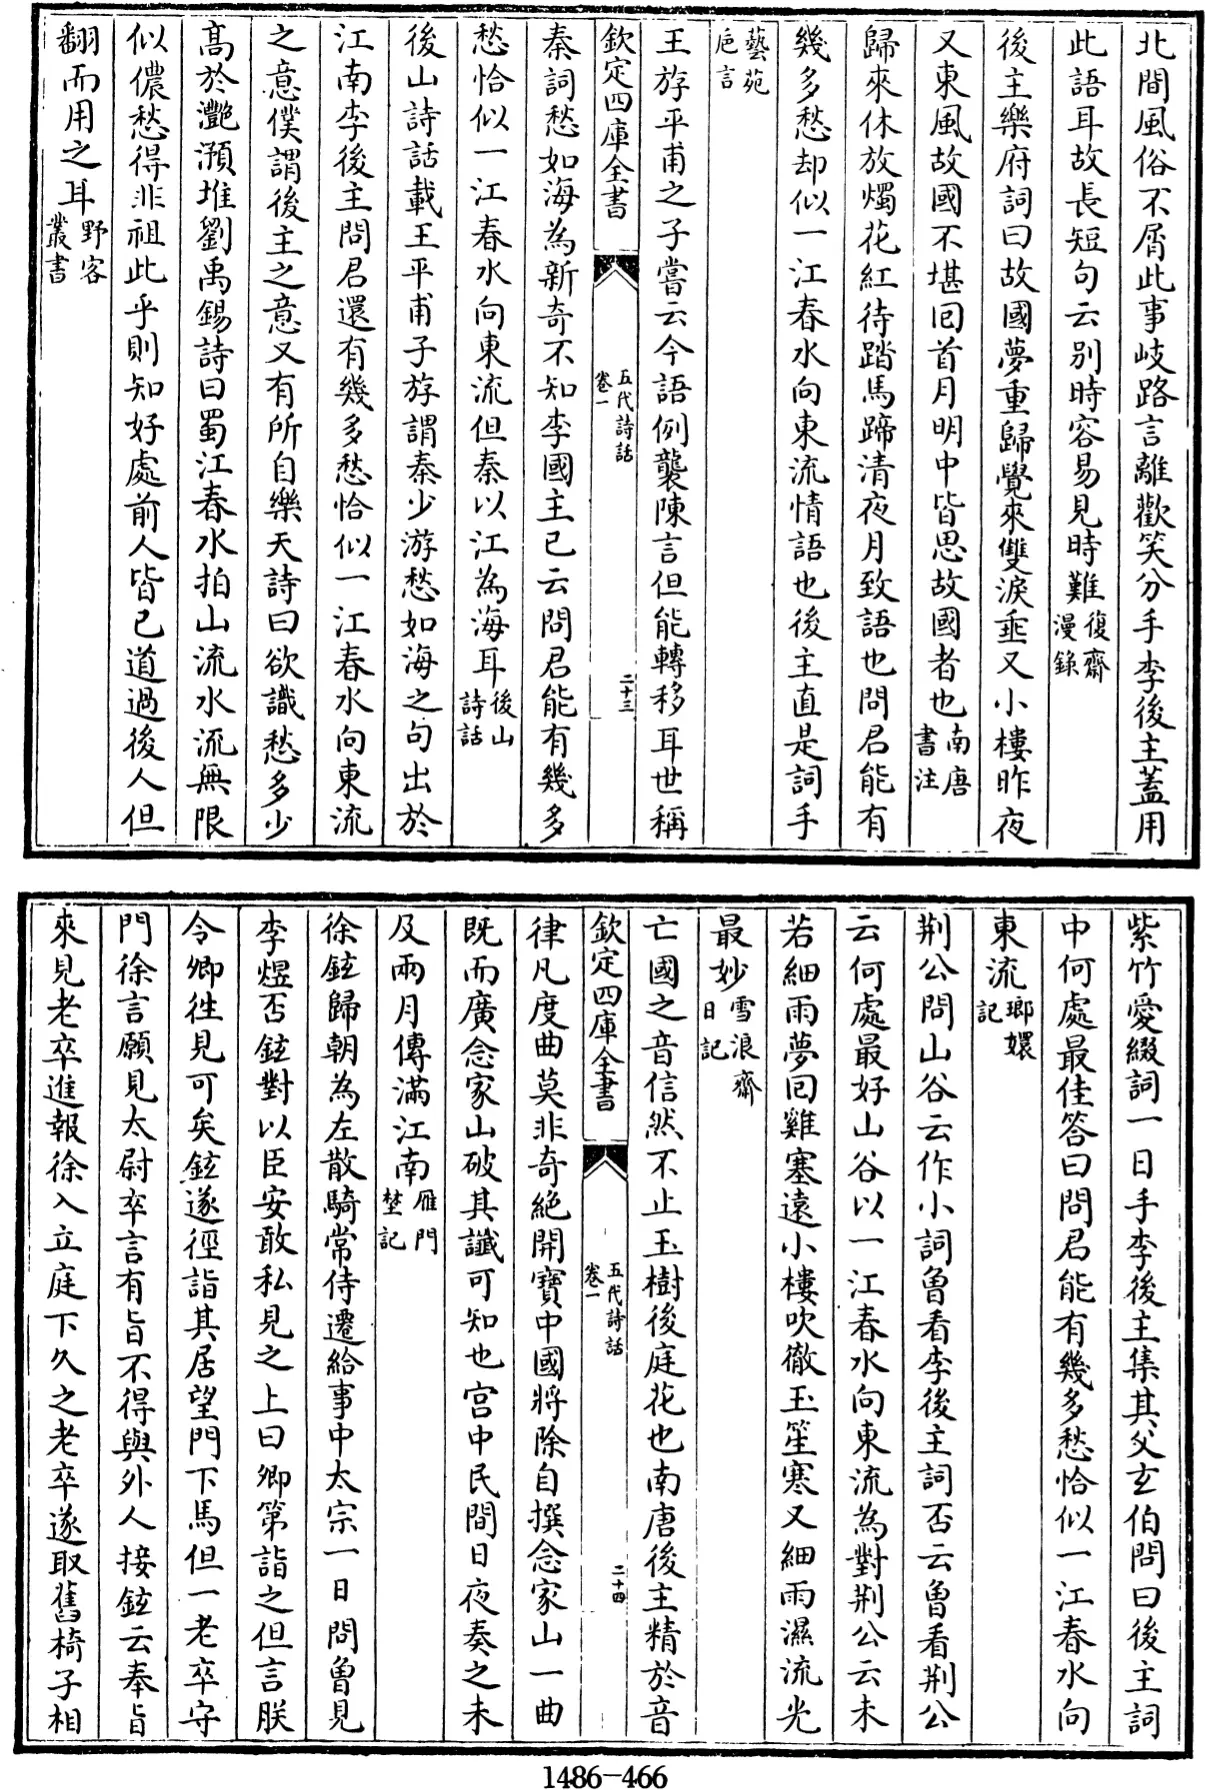 北間風俗不屑此事岐路言離歡笑分手李後主蓋用
此語耳故長短句云别時容易見時難復齋漫錄
後主樂府詞曰故國夢重歸覺來雙淚垂又小樓昨夜
又東風故國不堪回首月明中皆思故國者也南唐書注
歸來休放燭花紅待踏馬蹄清夜月致語也問君能有
幾多愁却似一江春水向東流情語也後主直是詞手
藝苑巵言
王斿平甫之子嘗云今語例襲陳言但能轉移耳世稱
欽定四庫全書
五代詩話
卷一
二十三
秦詞愁如海為新奇不知李國主已云問君能有幾多
愁恰似一江春水向東流但秦以江為海耳後山詩話
後山詩話載王平甫子斿謂秦少游愁如海之句出於
江南李後主問君還有幾多愁恰似一江春水向東流
之意僕謂後主之意又有所自樂天詩曰欲識愁多少
髙於灔澦堆劉禹錫詩曰蜀江春水拍山流水流無限
似儂愁得非祖此乎則知好處前人皆已道過後人但
翻而用之耳野客叢書
紫竹愛綴詞一日手李後主集其父玄伯問曰後主詞
中何處最佳答曰問君能有幾多愁恰似一江春水向
東流瑯嬛記
荆公問山谷云作小詞曾看李後主詞否云曾看荆公
云何處最好山谷以一江春水向東流為對荆公云未
若細雨夢回雞塞遠小樓吹徹玉笙寒又細雨濕流光
最妙雪浪齋日記
亡國之音信然不止玉樹後庭花也南唐後主精於音
欽定四庫全書
五代詩話
卷一
二十四
律凡度曲莫非奇絶開寶中國將除自撰念家山一曲
既而廣念家山破其讖可知也宫中民間日夜奏之未
及兩月傳滿江南雁門埜記
徐鉉歸朝為左散騎常侍遷給事中太宗一日問曾見
李煜否鉉對以臣安敢私見之上曰卿第詣之但言朕
令卿徃見可矣鉉遂徑詣其居望門下馬但一老卒守
門徐言願見太尉卒言有旨不得與外人接鉉云奉旨
來見老卒進報徐入立庭下久之老卒遂取舊椅子相
1486-466